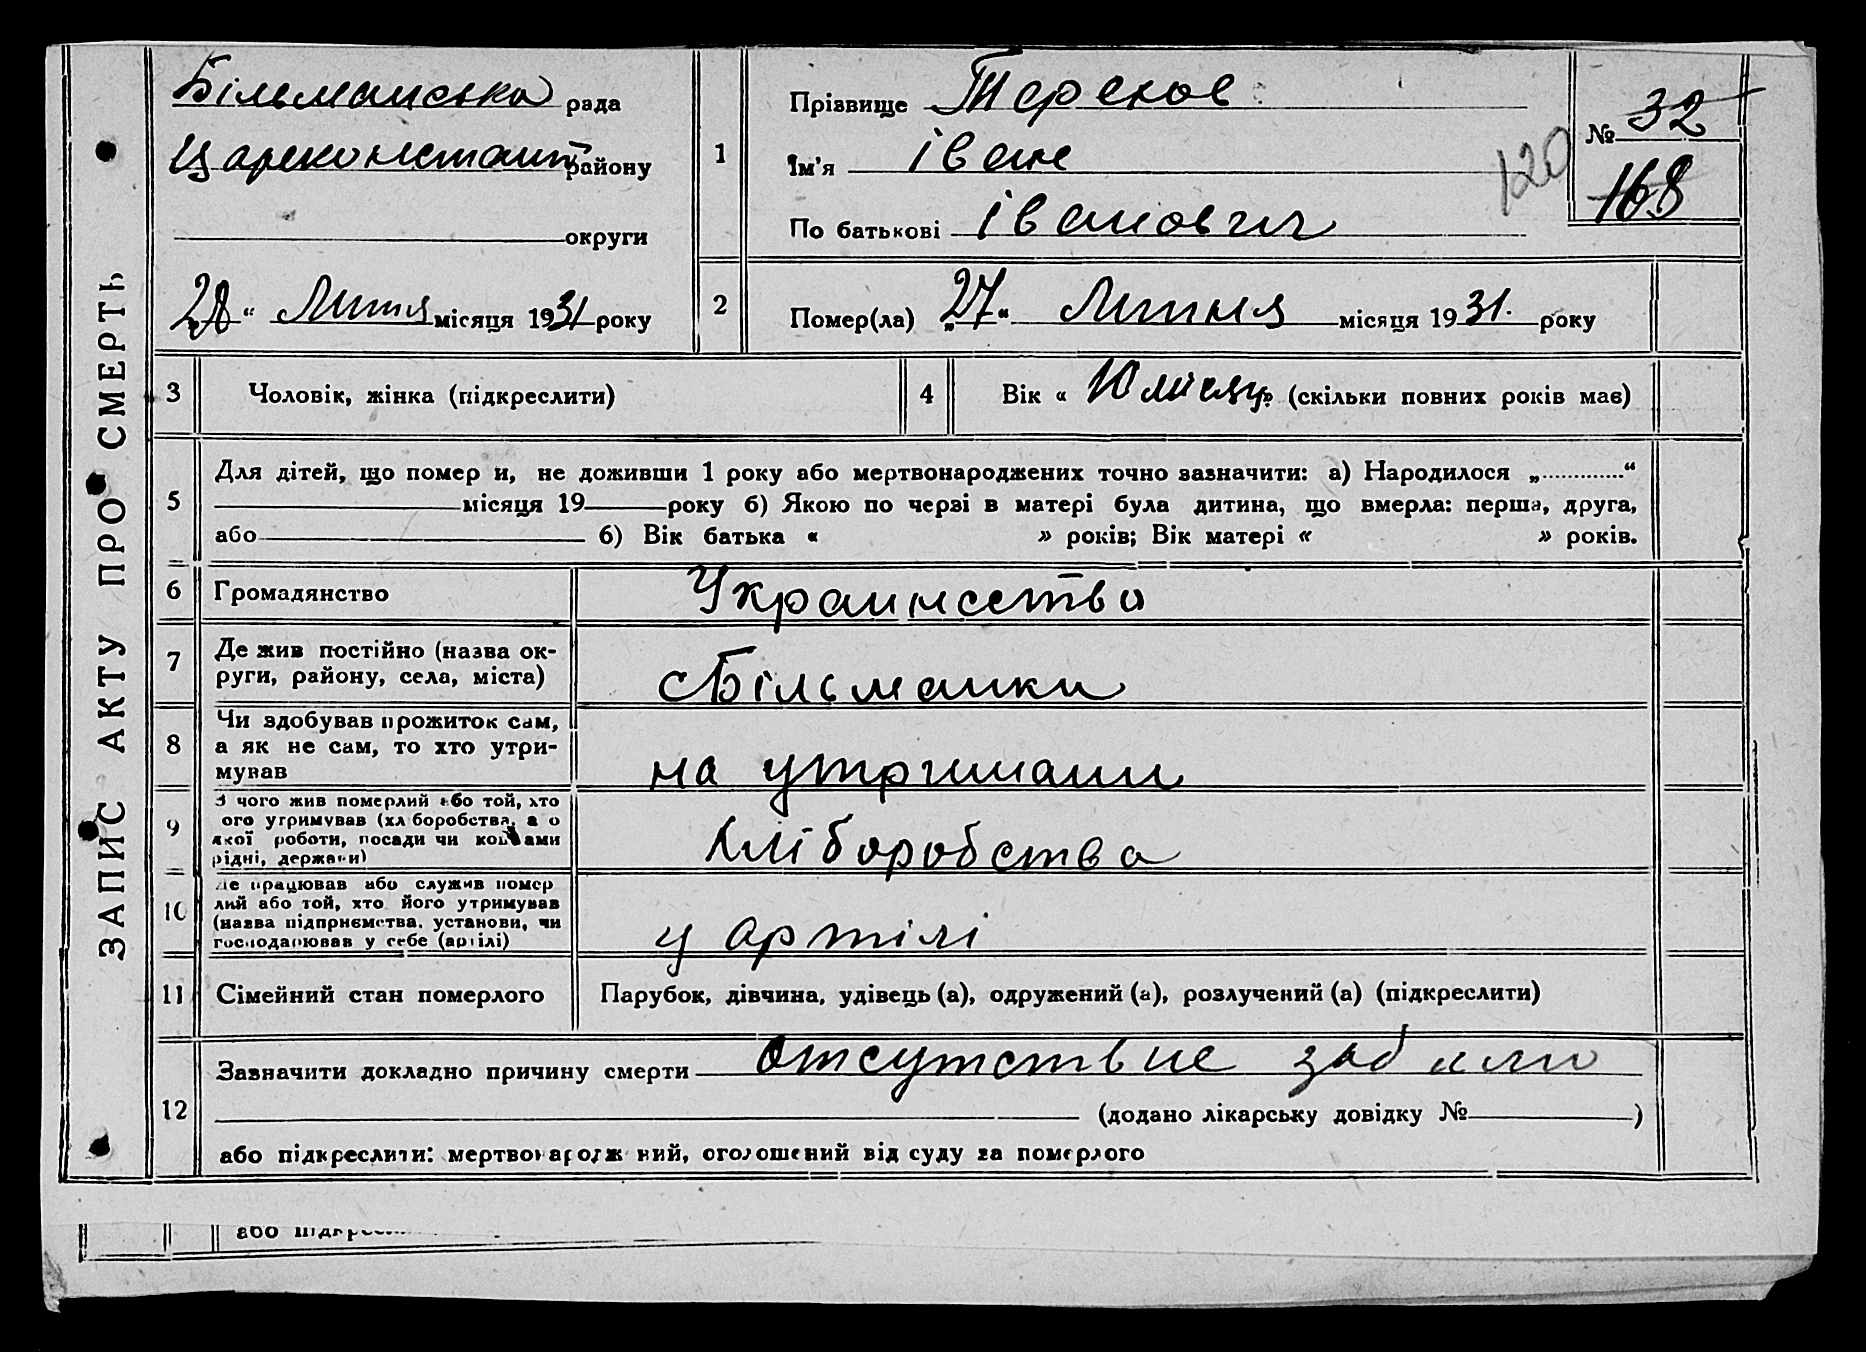 ЗАПИС АКТУ ПРО СМЕРТЬ
Більманська рада
Цареконстант району
округи
28 " Липня місяця 1931 року
1
Прізвище Терехов
Ім'я Іван
По батькові Іванович
№ 32
120
168
2
Помер(ла) „27“ Липня місяця 1931. року
3
Чоловік, жінка (підкреслити)
4
Вік « 10 місяц» (скільки повних років має)
5
Для дітей, що помер и, не доживши 1 року або мертвонароджених точно зазначити: а) Народилося „.............“
місяця 19 року б) Якою по черзі в матері була дитина, що вмерла: перша, друга,
або б) Вік батька « » років; Вік матері « » років.
6
Громадянство
Украинсство
7
Де жив постійно (назва ок-
руги, району, села, міста)
с Більманки
8
Чи здобував прожиток сам,
а як не сам, то хто утри-
мував
на утримани
9
З чого жив померлий або той, хто
ого утримував (хл боробства, а о
якої роботи, посади чи коштами
рідні, держави)
хліборобства
10
Де працював або служив помер
лий або той, хто його утримував
(назва підприємства, установи, чи
господарював у себе (артілі)
у артілі
11
Сімейний стан померлого
Парубок, дівчина, удівець (а), одружений (а), розлучений (а) (підкреслити)
12
Зазначити докладно причину смерти отсутствие
(додано лікарську довідку № )
або підкреслити: мертвонародж ний, оголошений від суду за померлого
або підкрес